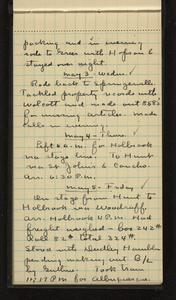 packing and in evening
rode to Greer with Hopson &
stayed over night.
May 3 - Wedn.
Rode back to Springerville.
Tackled property records with
Wolcott and made out 858's
for missing articles. Made
in evening.
May 4 - Thurs.
Left 6 A.M. for Holbrook
via stage line. To Hunt
via St Johns & Concho.
Arr. 6:30 P.M.
May 5 - Friday
On stage from Hunt to
Holbrook via Woodruff.
Arr. Holbrook 4 P.M. Had
freight weighed - box 242#
Roll 82# Total 324#.
Stored with Dudley
pending making out B/L
by Guthrie. Took train
11:17 P.M. for Albuquerque.